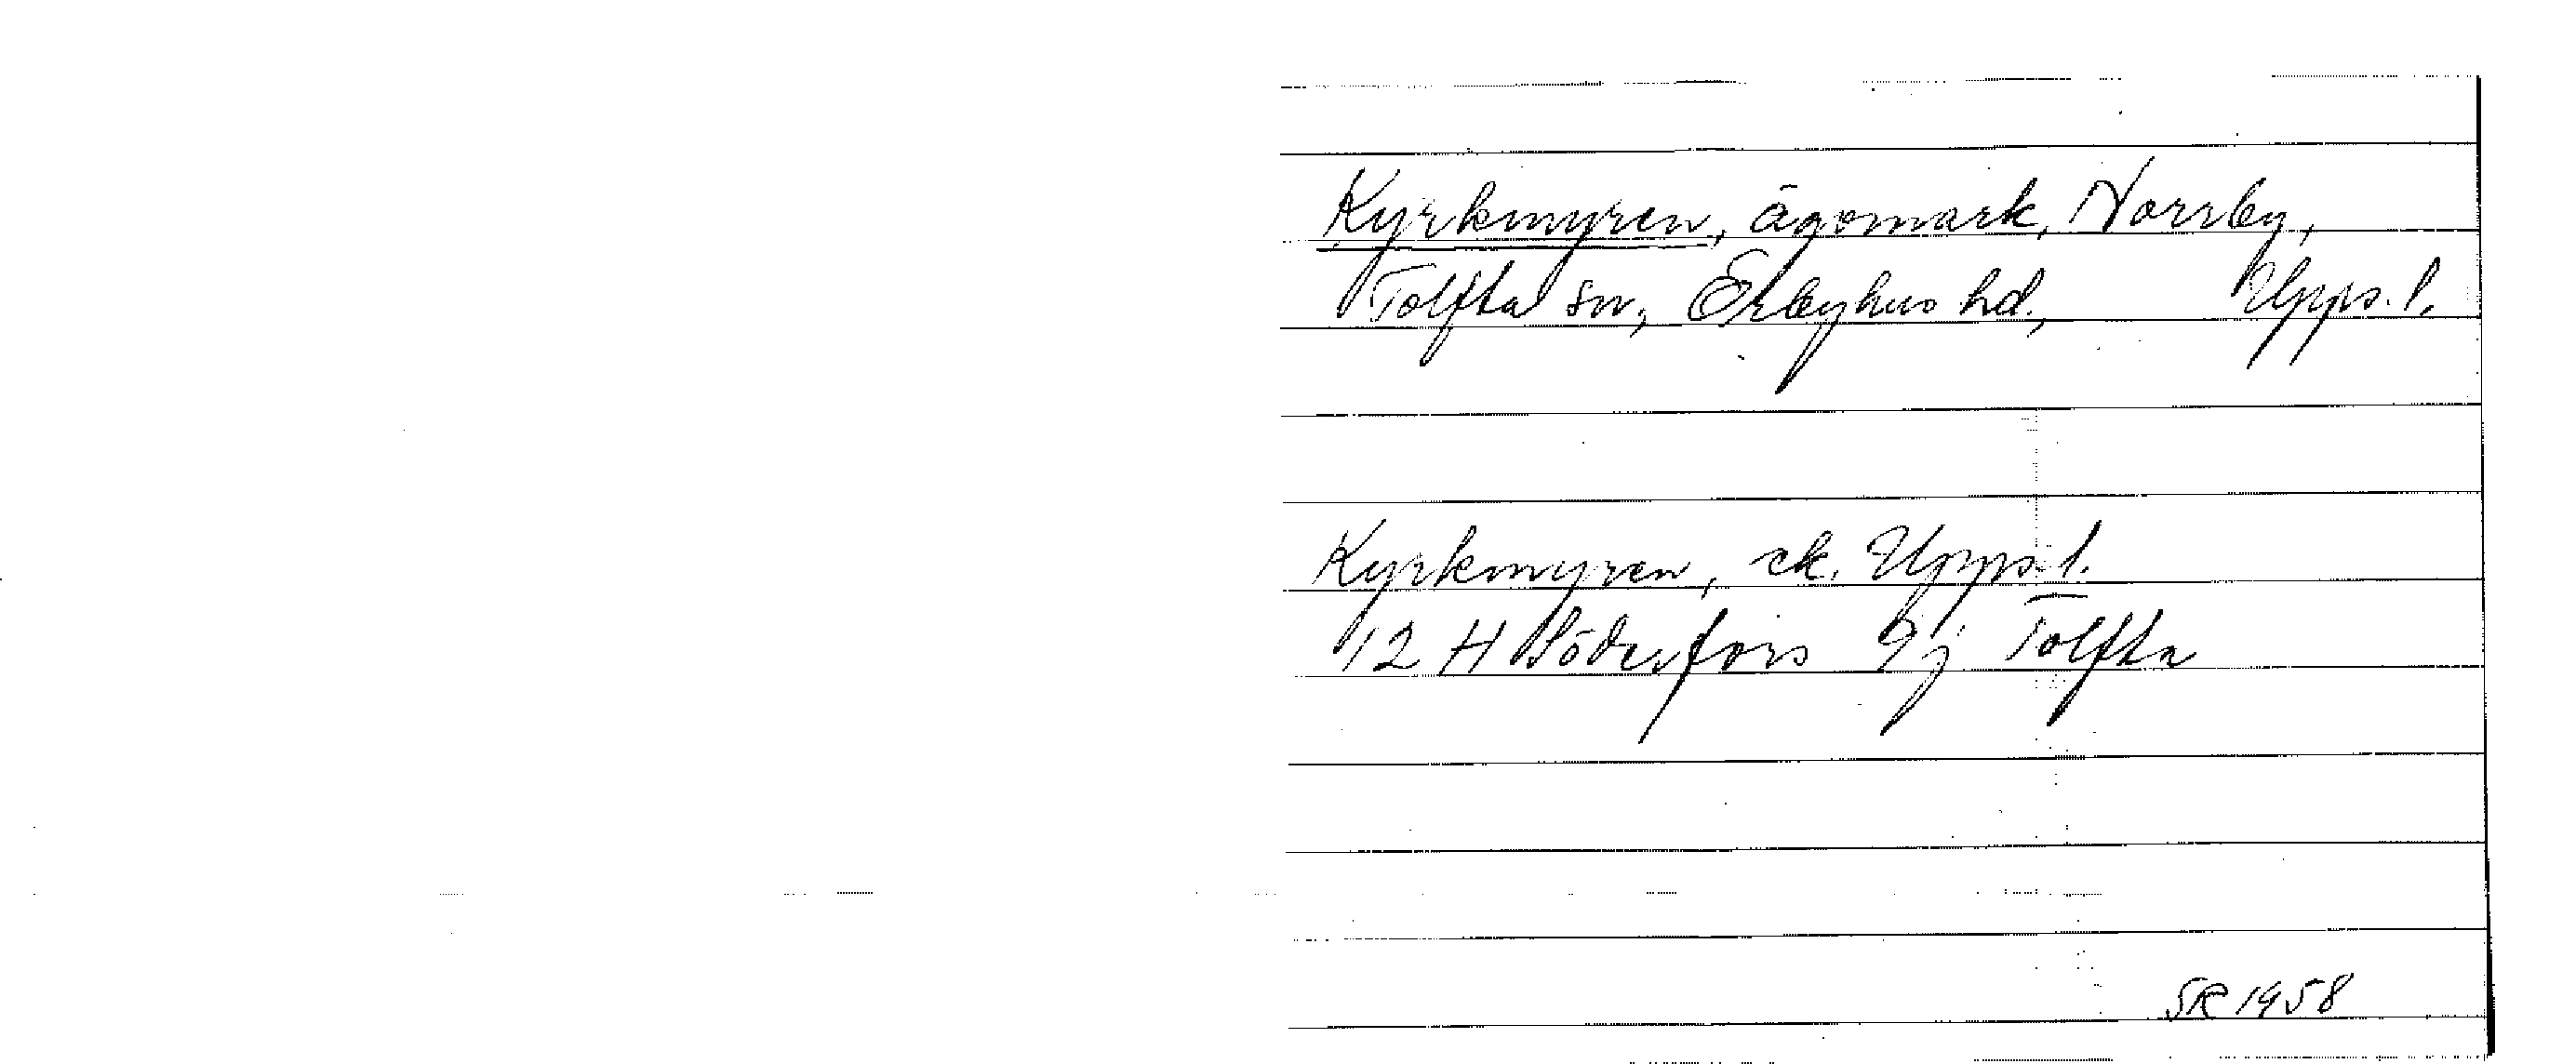 Kyrkmyren, ägomark, Norrby,
Tolfta sn, Örbyhus hd., Upps. l.
Kyrkmyren, ek. Upps. l.
12 H Söderfors 9j Tolfta
SR 1958